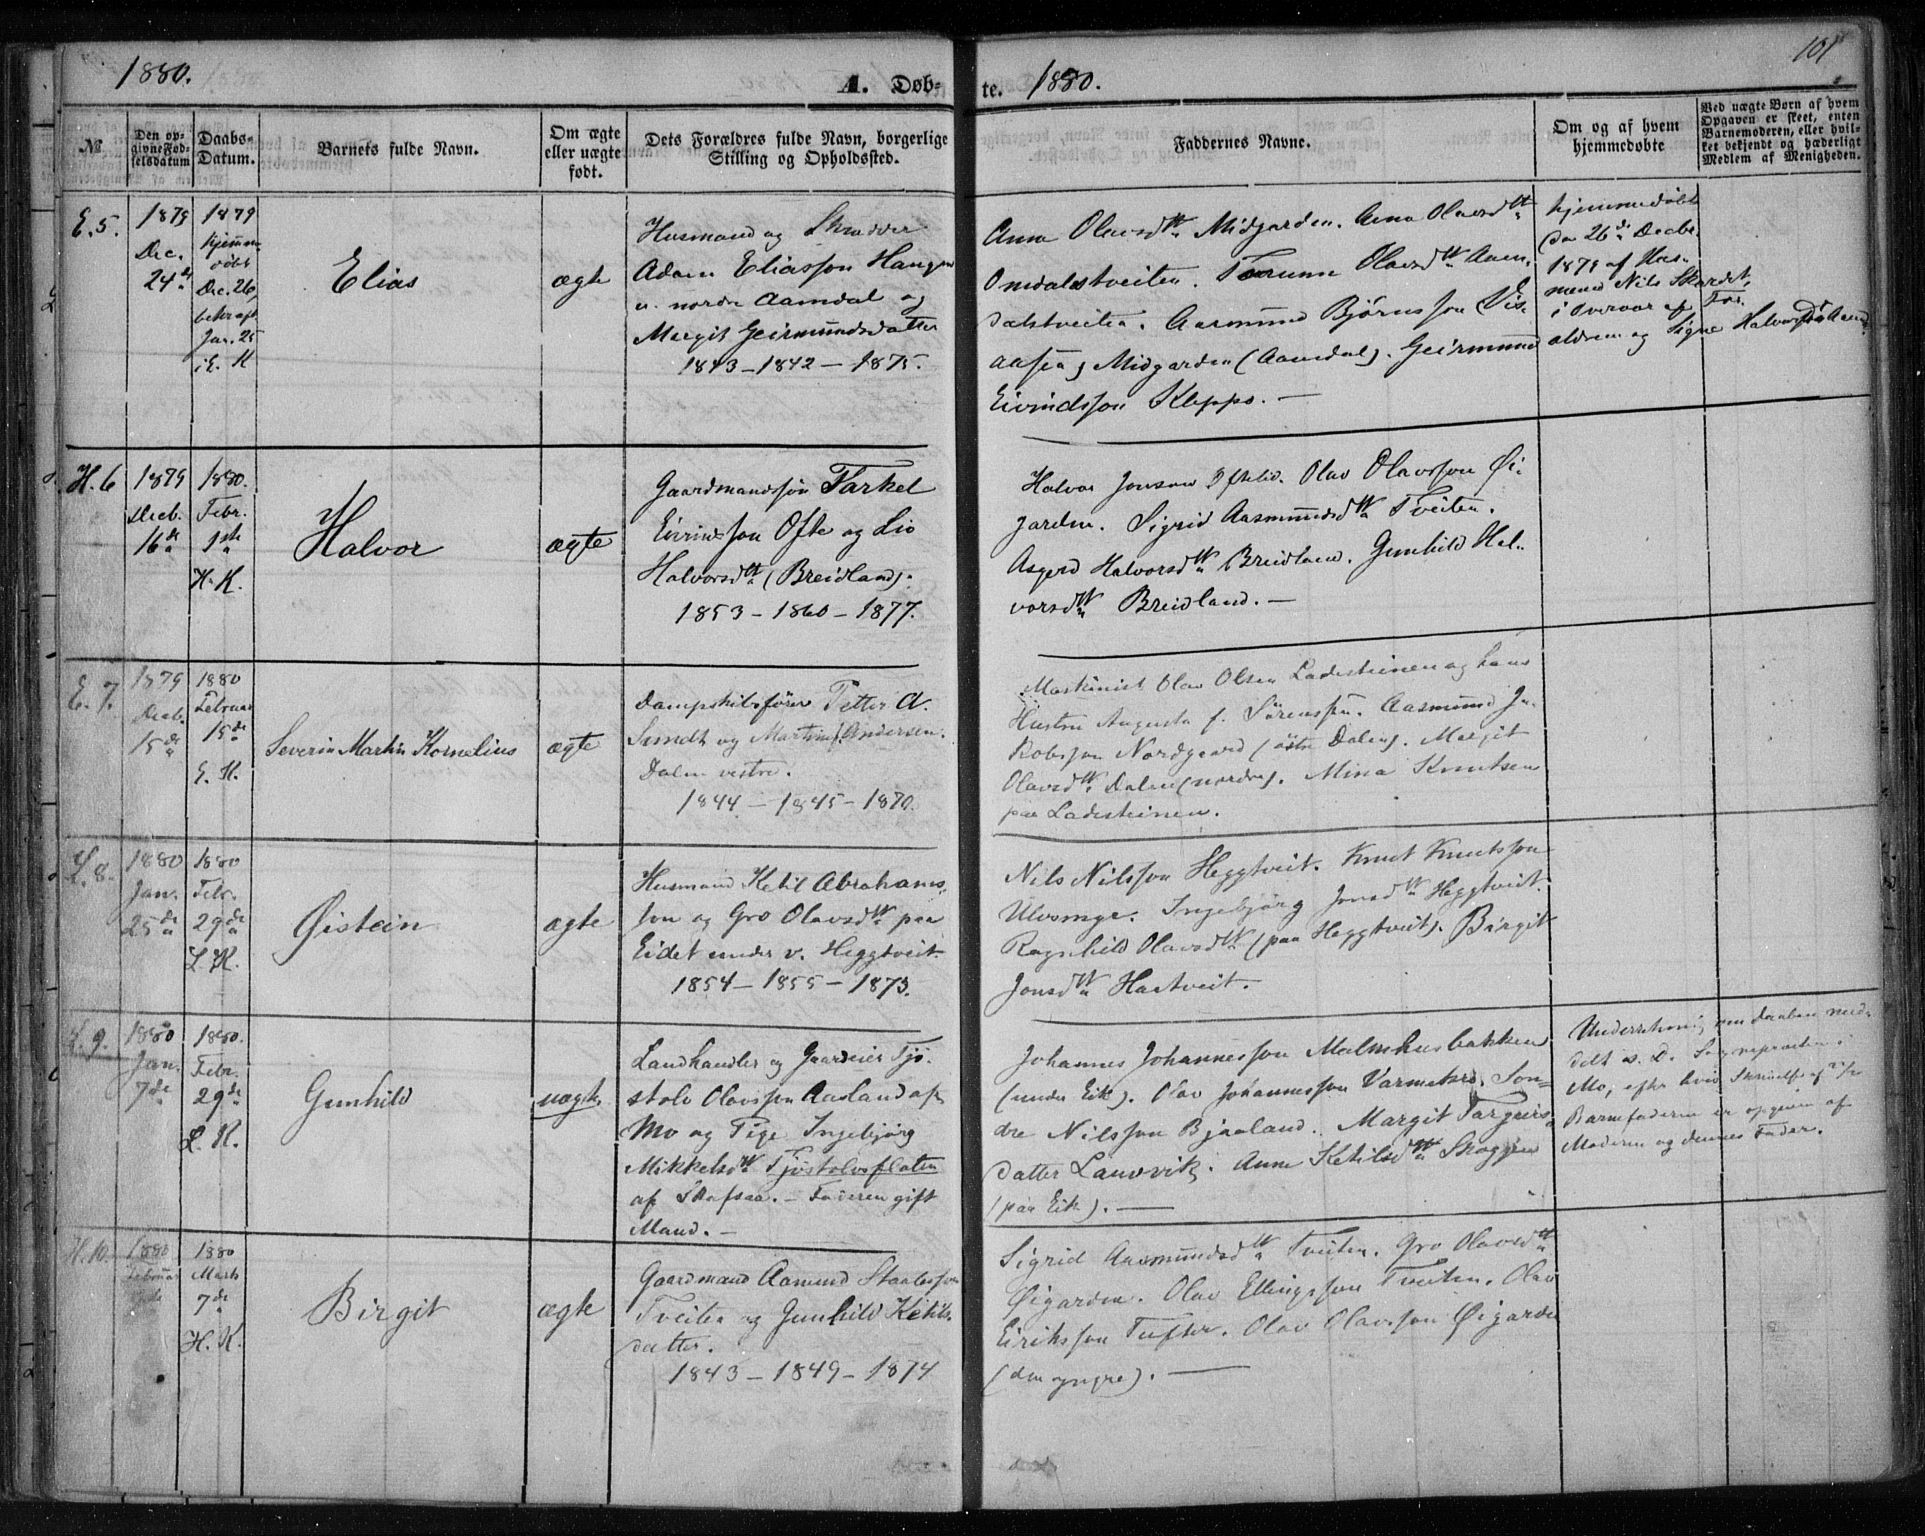 1880.
A. Døb-
te. 1880.
101
№
Den op-
givne Fød-
selsdatum
Daabs-
Datum.
Barnets fulde Navn.
Om ægte
eller uægte
født.
Dets Forældres fulde Navn, borgerlige
Stilling og Opholdssted.
Faddernes Navne.
Om og af hvem
hjemmedøbte
Ved uægte Børn af hvem
Opgaven er skeet, enten
Barnemoderen, eller hvil-
ket bekjendt og hæderligt
Medlem af Menigheden.
E. 5.
1879
Dec.
24de
1879
hjemme
døbt
Dec. 26,
bekræft.
Jan. 25
i E. K
Elias
ægte
Husmand og Skrædder
Adam Eliasson Haugen
u. nordre Aamdal og
Margit Geirmundsdatter
1843 – 1842 – 1875.
Anne Olavsdtr Midgarden. Anna Olavsdtr
Omdalstveiten. Torunn Olavsdtr Aam-
dalstveiten. Aasmund Bjørnsson Vis-
aasen, Midgarden (Aamdal). Geirmund
Eivindsson Kleppo. –
hjemmedøbt
den 26de Decbr.
1879 af Hus-
mand Nils Skardet,
i Overvær af For-
ældrene og Signe Halvorsdtr
H. 6
1879
Decb.
16de
1880.
Febr.
1ste
H. K.
Halvor
ægte
Gaardmandssøn Tarkel
Eivindsson Ofte og Liv
Halvorsdtr (Breidland).
1853 – 1860 – 1877.
Halvor Jonson Oftelid. Olav Olavsson Øi-
garden. Sigrid Aasmundsdtr Tveiten.
Asgerd Halvorsdtr Breidland. Gunhild Hal-
vorsdtr Breidland. –
E. 7.
1879
Decb.
15de
1880
Februar
15de
E. K.
Severin Martin Kornelius
ægte
Dampskibsfører Petter A.
Sundt og Martine f. Andersen.
Dalen vestre.
1844 – 1845 – 1870.
Maskinist Olav Olsen Ladesteinen og hans
Hustru Augusta f. Sørenssen. Aasmund Ja-
kobsson Nordgaard (østre Dalen). Margit
Olavsdtr Dalen (nordre). Mina Knutsen
paa Ladesteinen.
L. 8.
1880
Jan.
25de
1880
Febr.
29de
L. K.
Øistein
ægte
Husmand Ketil Abrahams-
son og Gro Olavsdtr paa
Eidet under v. Heggtveit
1854 – 1855 – 1873.
Nils Nilsson Heggtveit. Knut Knutsson
Ulvsmyr. Ingebjørg Jonsdtr Heggtveit.
Ragnhild Olavsdtr (paa Heggtveit). Birgit
Jonsdtr Hastveit.
L. 9.
1880
Jan.
7de
1880.
Febr.
29de
L. K.
Gunhild
uægte
Landhandler og Gaardeier Tjø-
stolv Olavsson Aasland af
Mo og Pige Ingebjørg
Mikkelsdtr Tjøstolvsflaten
af Skafsaa. – Faderen gift
Mand. –
Johannes Johannesson Malmhusbakken
(under Eik). Olav Johannesson Varmebrd. Son-
dre Nilsson Bjaaland. Margit Targeirs-
datter Lauvvik. Anne Ketilsdtr Skoggen
(paa Eik). –
Underretning om Daaben med-
delt v. D. Sognepræsten i
Mo, efter hvis Skrivelse af
Barnefaderen er opgiven af
Moderen og dennes Fader.
H. 10.
1880
Februar
1880
Marts
7de
H. K.
Birgit
ægte
Gaardmand Aamund Staalesson
Tveiten og Gunhild Ketils-
datter.
1843 – 1849 – 1874
Sigrid Aasmundsdtr Tveiten. Gro Olavsdtr
Øigarden. Olav Ellingsson Tveiten. Olav
Eiriksson Tufter. Olav Olavsson Øigarden
(den yngre). –